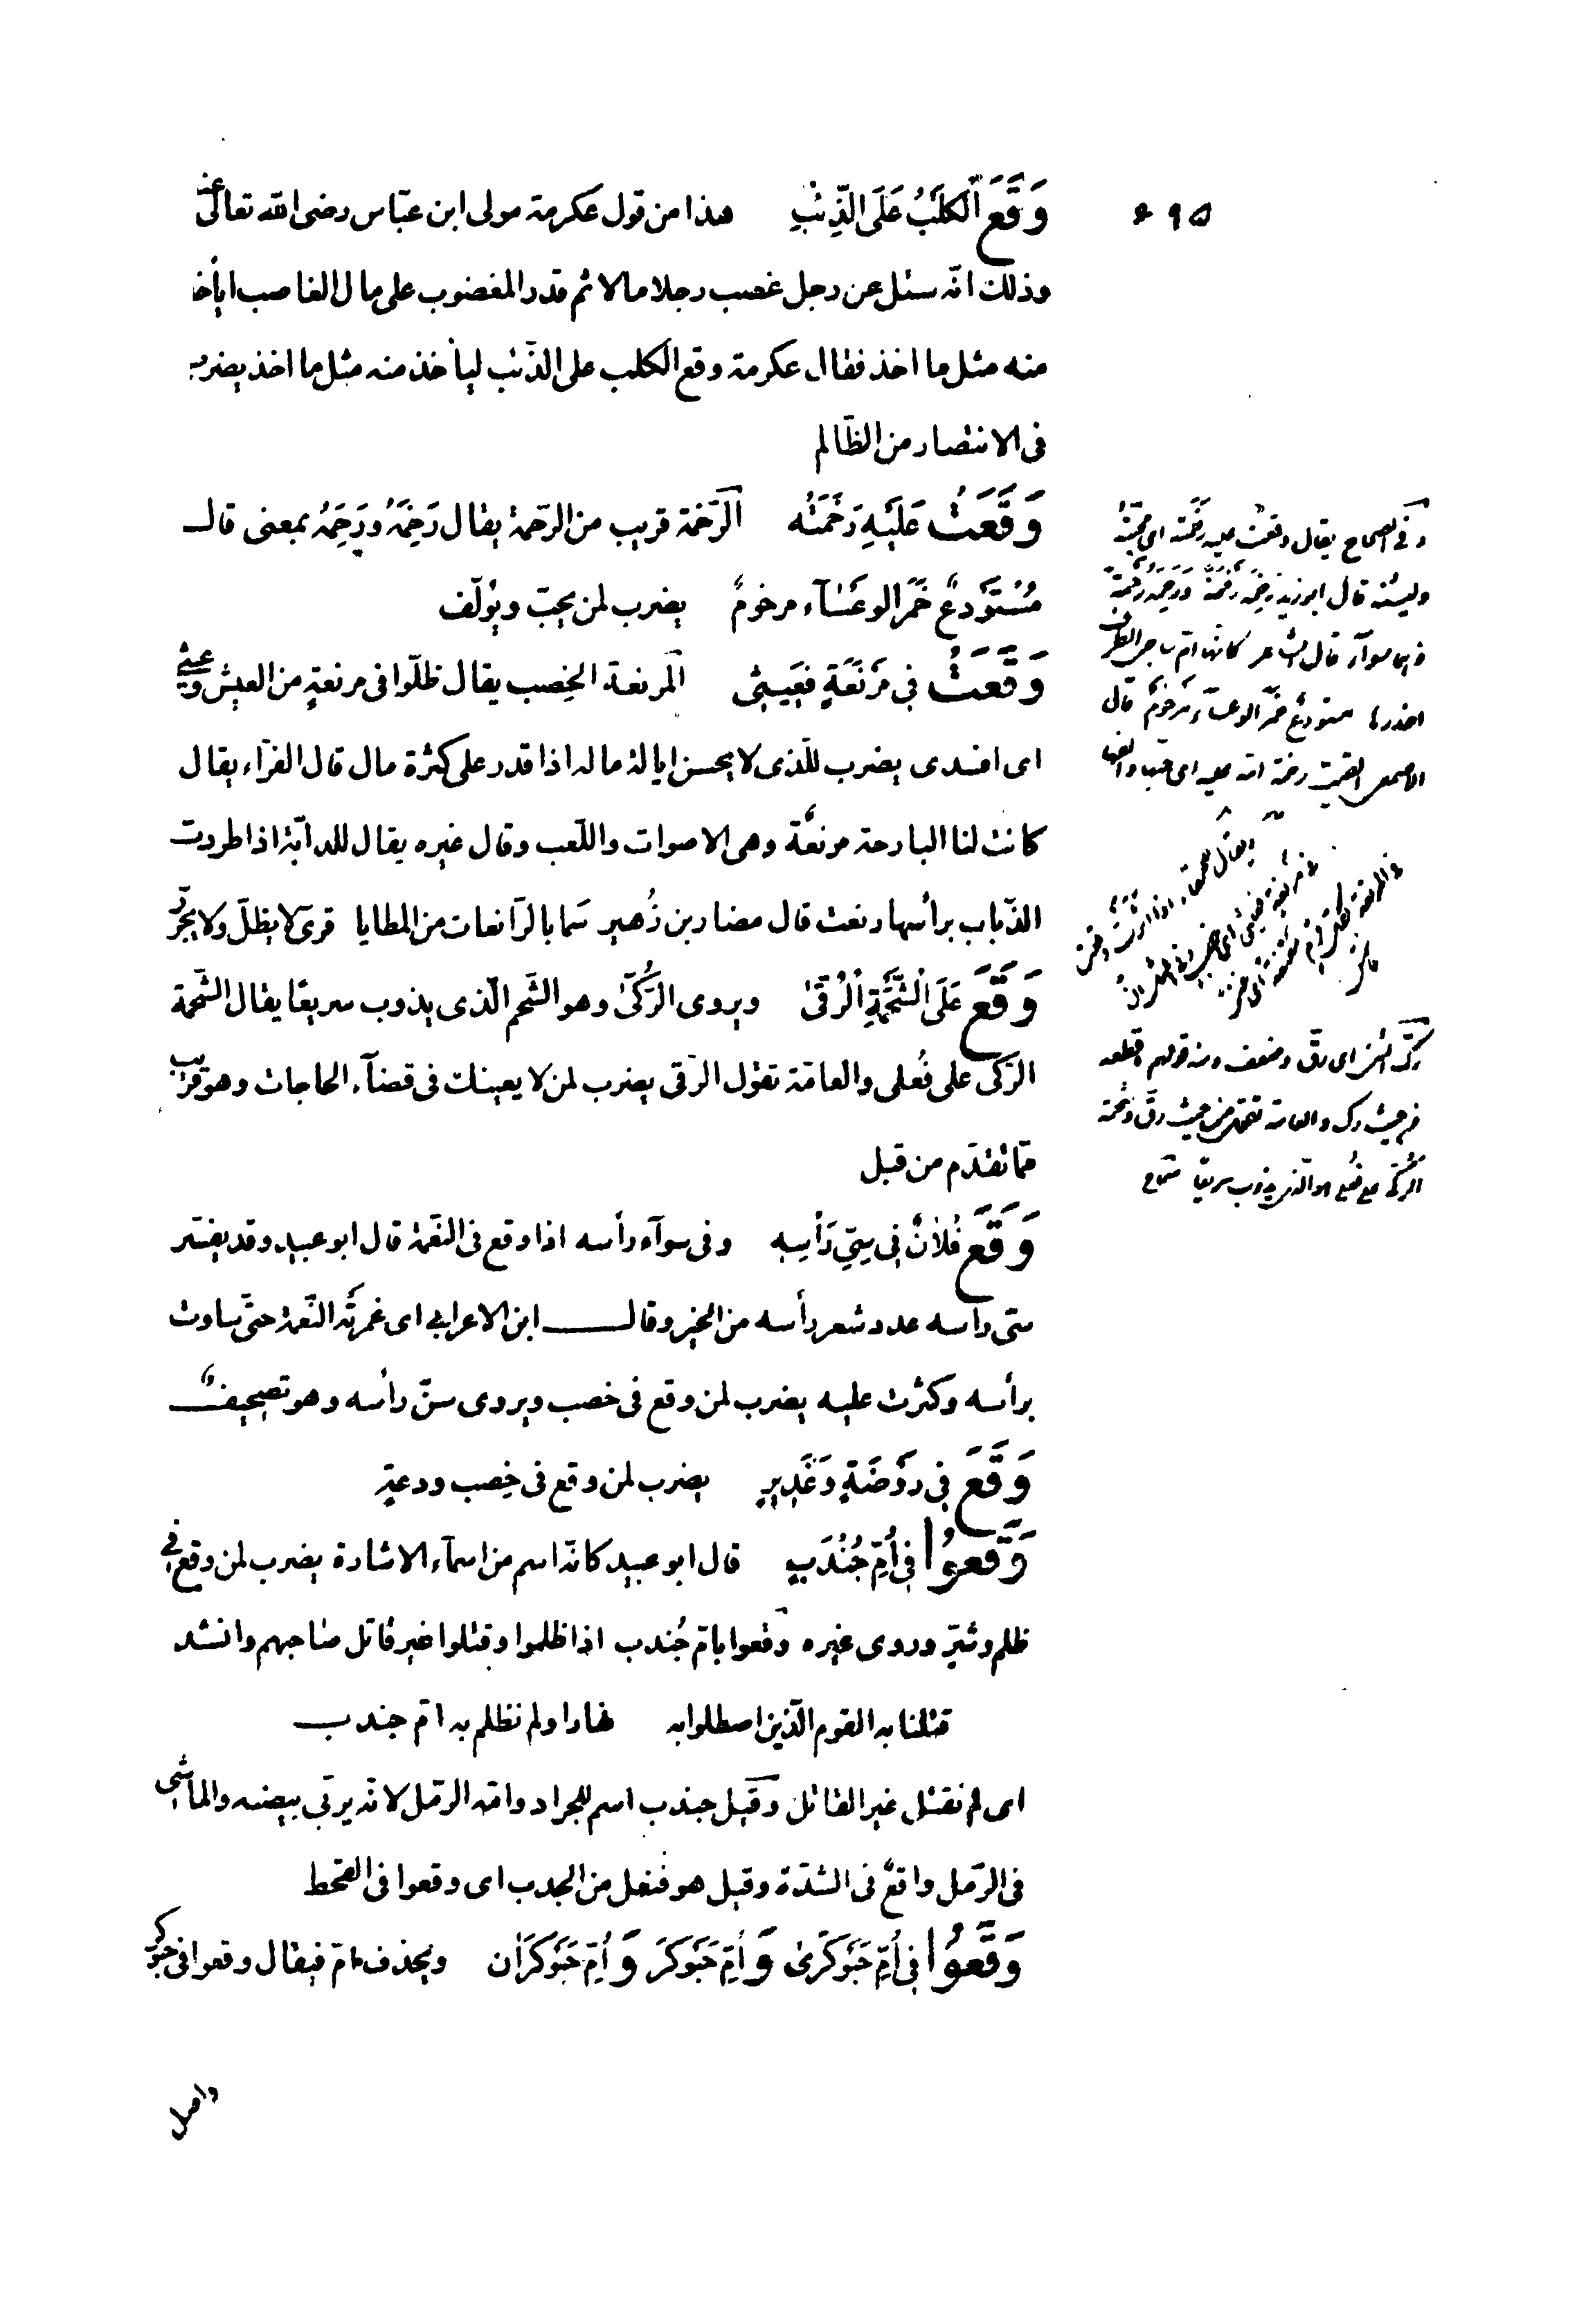 ٦٩٥
وَقَعَ الْكَلْبُ عَلَى الذِّئْبِ هذا من قول عكرمة مولى ابن عبّاس رضى الله تعالى عنه
وذلك انّه سئل عن رجل غصب رجلا مالا ثم قدر المغصوب على مال الغاصب ايأخذ
منه مثل ما اخذ فقال عكرمة وقع الكلب على الذّئب ليأخذ منه مثل ما اخذ يضرب
فى الانتصار من الظّالم
وَقَعَتْ عَلَيْهِ رَخَمَتُه الرّخمة قريب من الرّحمة يقال رَخِمَهُ ورَحِمَهُ بمعنى قال
مُسْتَوْدَعٌ خَمَرَ الوعسآء مرخومٌ يضرب لمن يحبّ ويؤلّف
وَقَعَتْ فى مَرْتَعَةٍ فعِيثِى المرتعة الخِصب يقال ظلّوا فى مرتعةٍ من العيش وعيثى
اى افسدى يضرب للّذى لا يحسن ايالة ماله اذا قدر على كثرة مال قال الفرّآء يقال
كانت لنا البارحة مرتعة وهى الاصوات واللّعب وقال غيره يقال للدابّة اذا طردت
الذّباب برأسها رنعت قال مصاد بن زُهير سما بالرّانعات من المطايا قوىّ لا يظلّ ولا يجور
وَقَعَ عَلَى الشَّحْمَةِ الرُّقَّى ويروى الرُكَّى وهو الشّحم الّذى يذوب سريعًا يقال الشّحمة
الرّكى على فُعلى والعامّة تقول الرّقى يضرب لمن لا يعينك فى قضآء الحاجات وهو قريب
ممّا تقدّم من قبل
وَقَعَ فُلَانٌ فى سِىِّ رَأْسِهِ وفى سوآء رأسه اذا وقع فى النّعمة قال ابو عبيد وقد يفسّر
سىّ رأسه عدد شعر رأسه من الخير وقال ابن الاعرابى اى غمرته النّعمة حتّى ساوت
برأسه وكثرت عليه يضرب لمن وقع فى خصب ويروى سنّ رأسه وهو تصحيف
وَقَعَ فى رَوْضَةٍ وَغَدِيرٍ يضرب لمن وقع فى خِصب ودعةٍ
وَقَعُوا فى أُمِّ جُنْدَبٍ قال ابو عبيد كانّه اسم من اسمآء الاشارة يضرب لمن وقع فى
ظلم وشرّ وروى غيره وقعوا بامّ جُندب اذا ظلموا وقتلوا غير قاتل صاحبهم وانشد
قتلنا به القوم الّذين اصطلوا به نهارا ولم نظلم به امّ جندب
اى لم نقتل غير القاتل وقيل جندب اسم للجراد وامّه الرّمل لانّه يربّى بيضه والماشى
فى الرّمل واقع فى الشدّة وقيل هو فنعل من الجدب اى وقعوا فى القحط
وَقَعُوا فى أُمِّ حَبَوْكَرَى وَ أُمِّ حَبَوْكَرَ وَ أُمِّ حَبَوْكَرَان ويحذف امّ فيقال وقعوا فى حبوكر
واصل
وفى الصحاح يقال وقعت عليه رخمته اى محبّته
ولينه قال ابو زيد رخمه رخمة ورحمه رحمة
وهما سوآء قال الشاعر كانها امّ ساجى الطرف
اخدرها مستودع خمر الوعسآء مرخوم قال
الاصمعى القيت رخمة امّه عليه اى حبّها والفها
ركّ الشئ اى رقّ وضعف ومنه قولهم اقطعه
من حيث ركّ والعامة تقول من حيث رقّ وشحمة
الرّكى على فعلى هو الّذى يذوب سريعًا صحاح